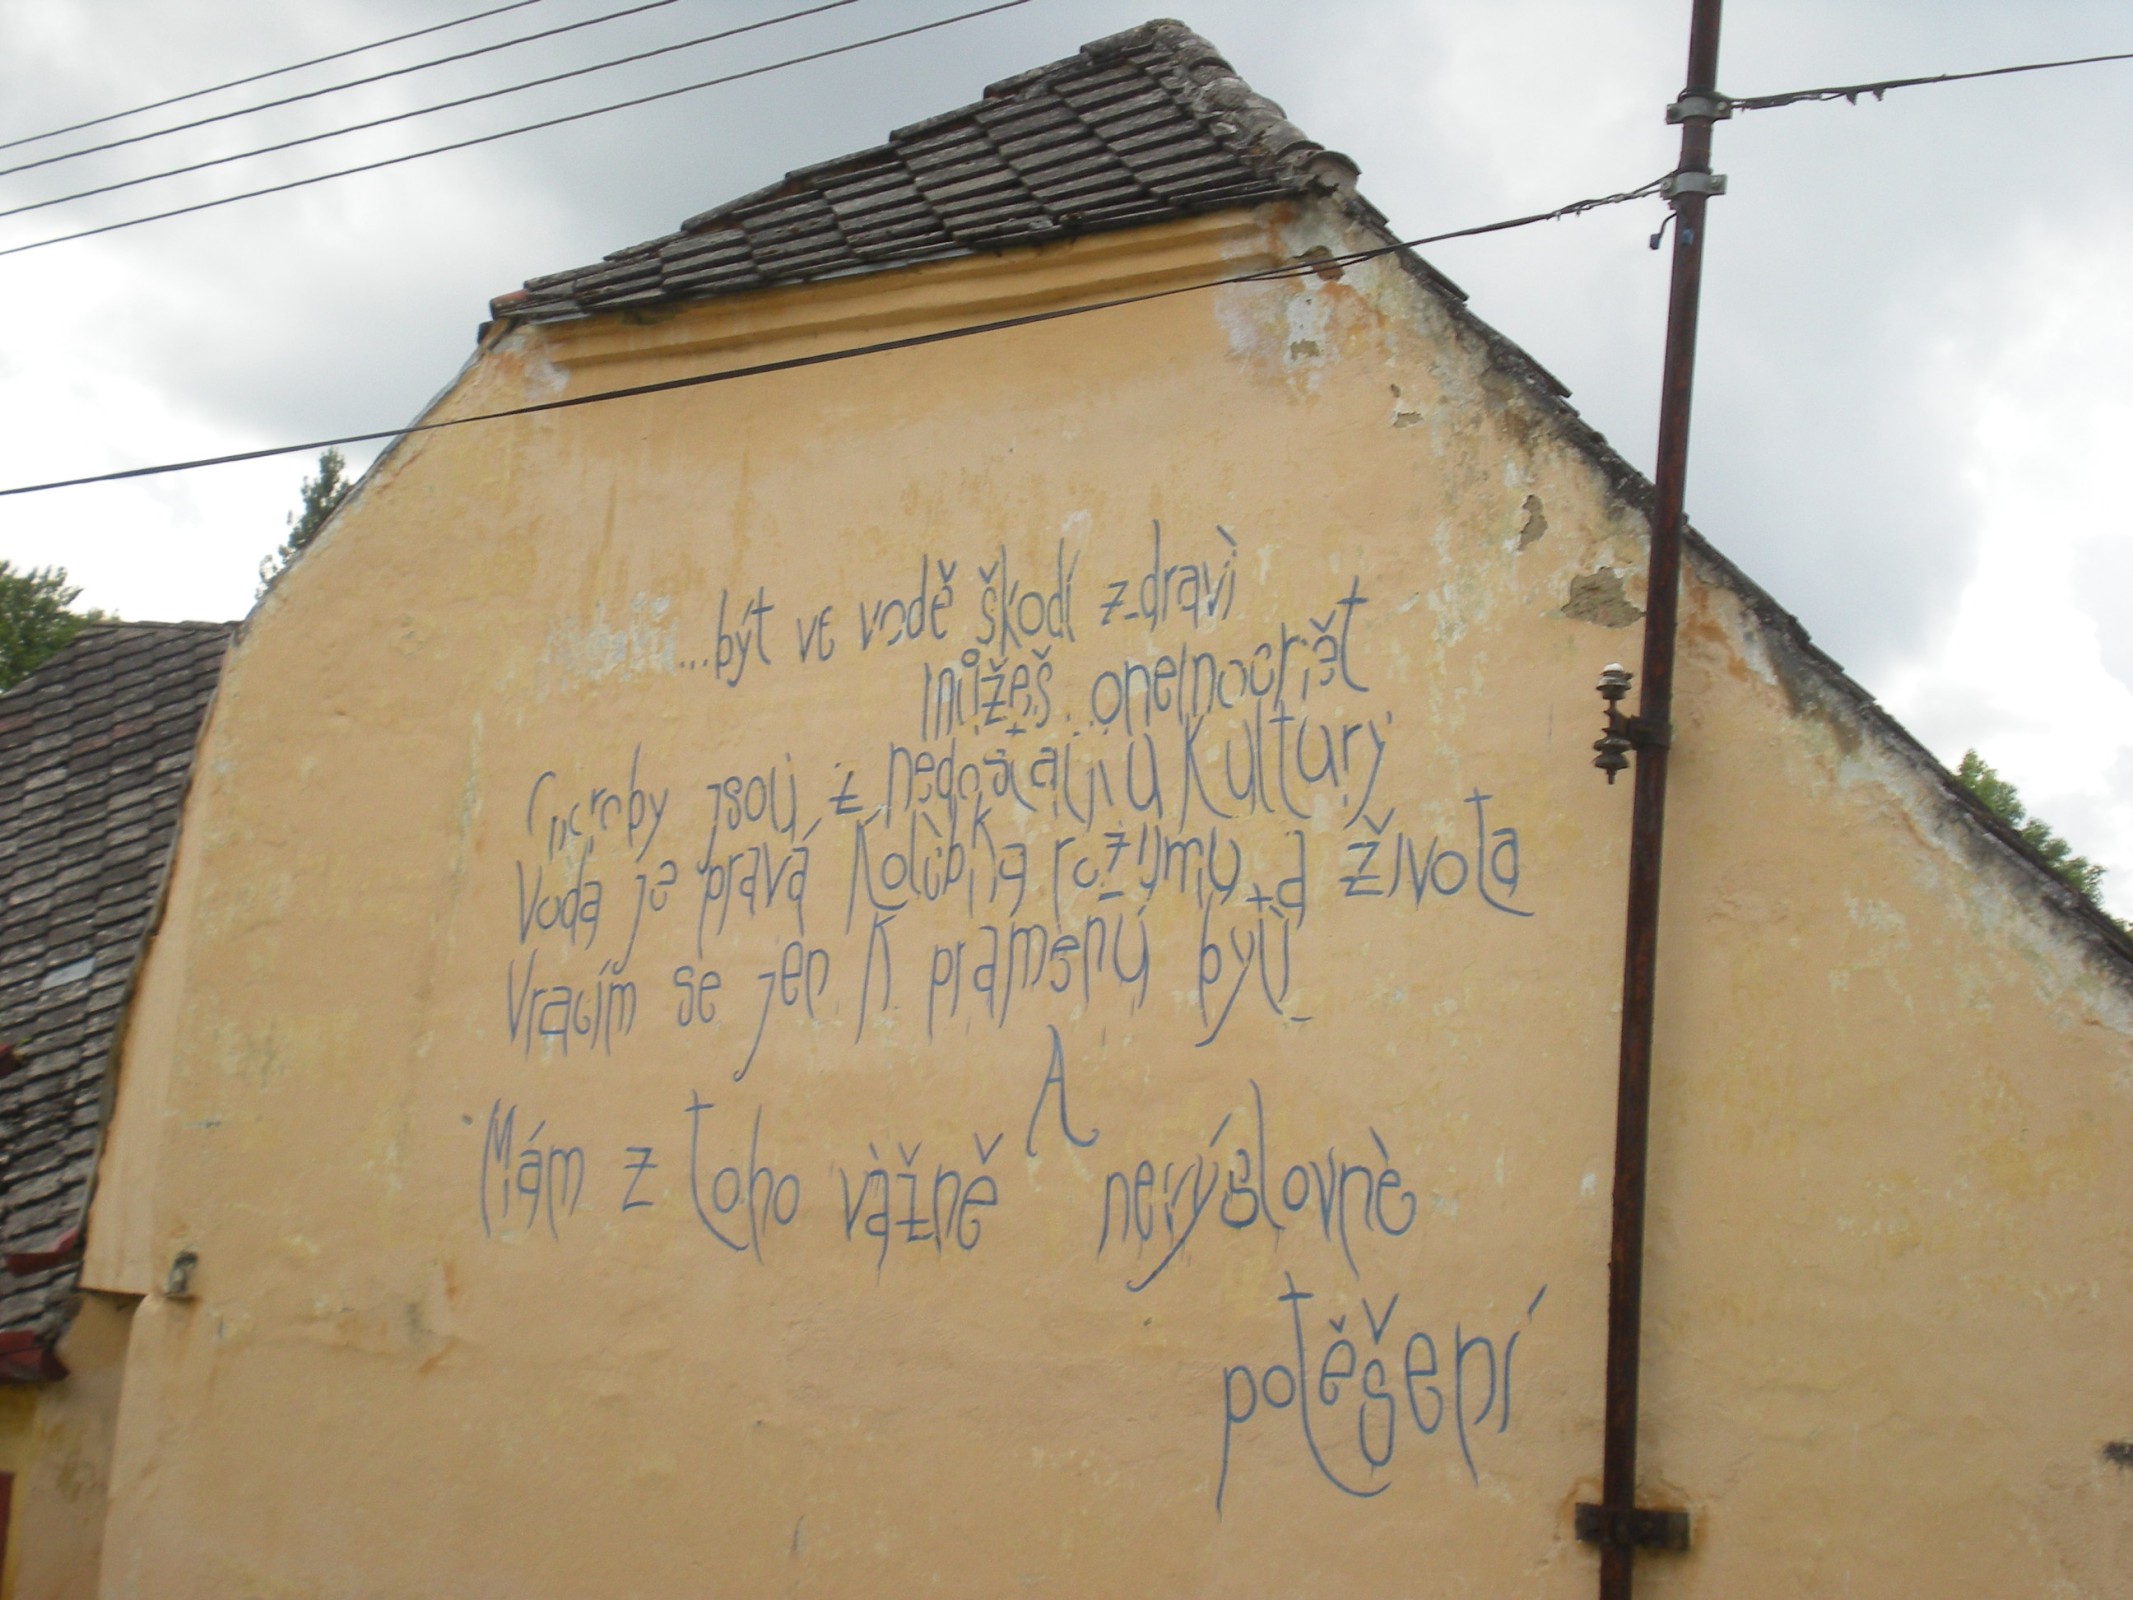 ...být ve vodě škodí zdraví
můžeš onemocnět
Choroby jsou z nedostatku kultury
Voda je pravá kolébka rozumu a života
Vracím se jen k pramenů bytí
A
Mám z toho vážně nevýslovné
potěšení